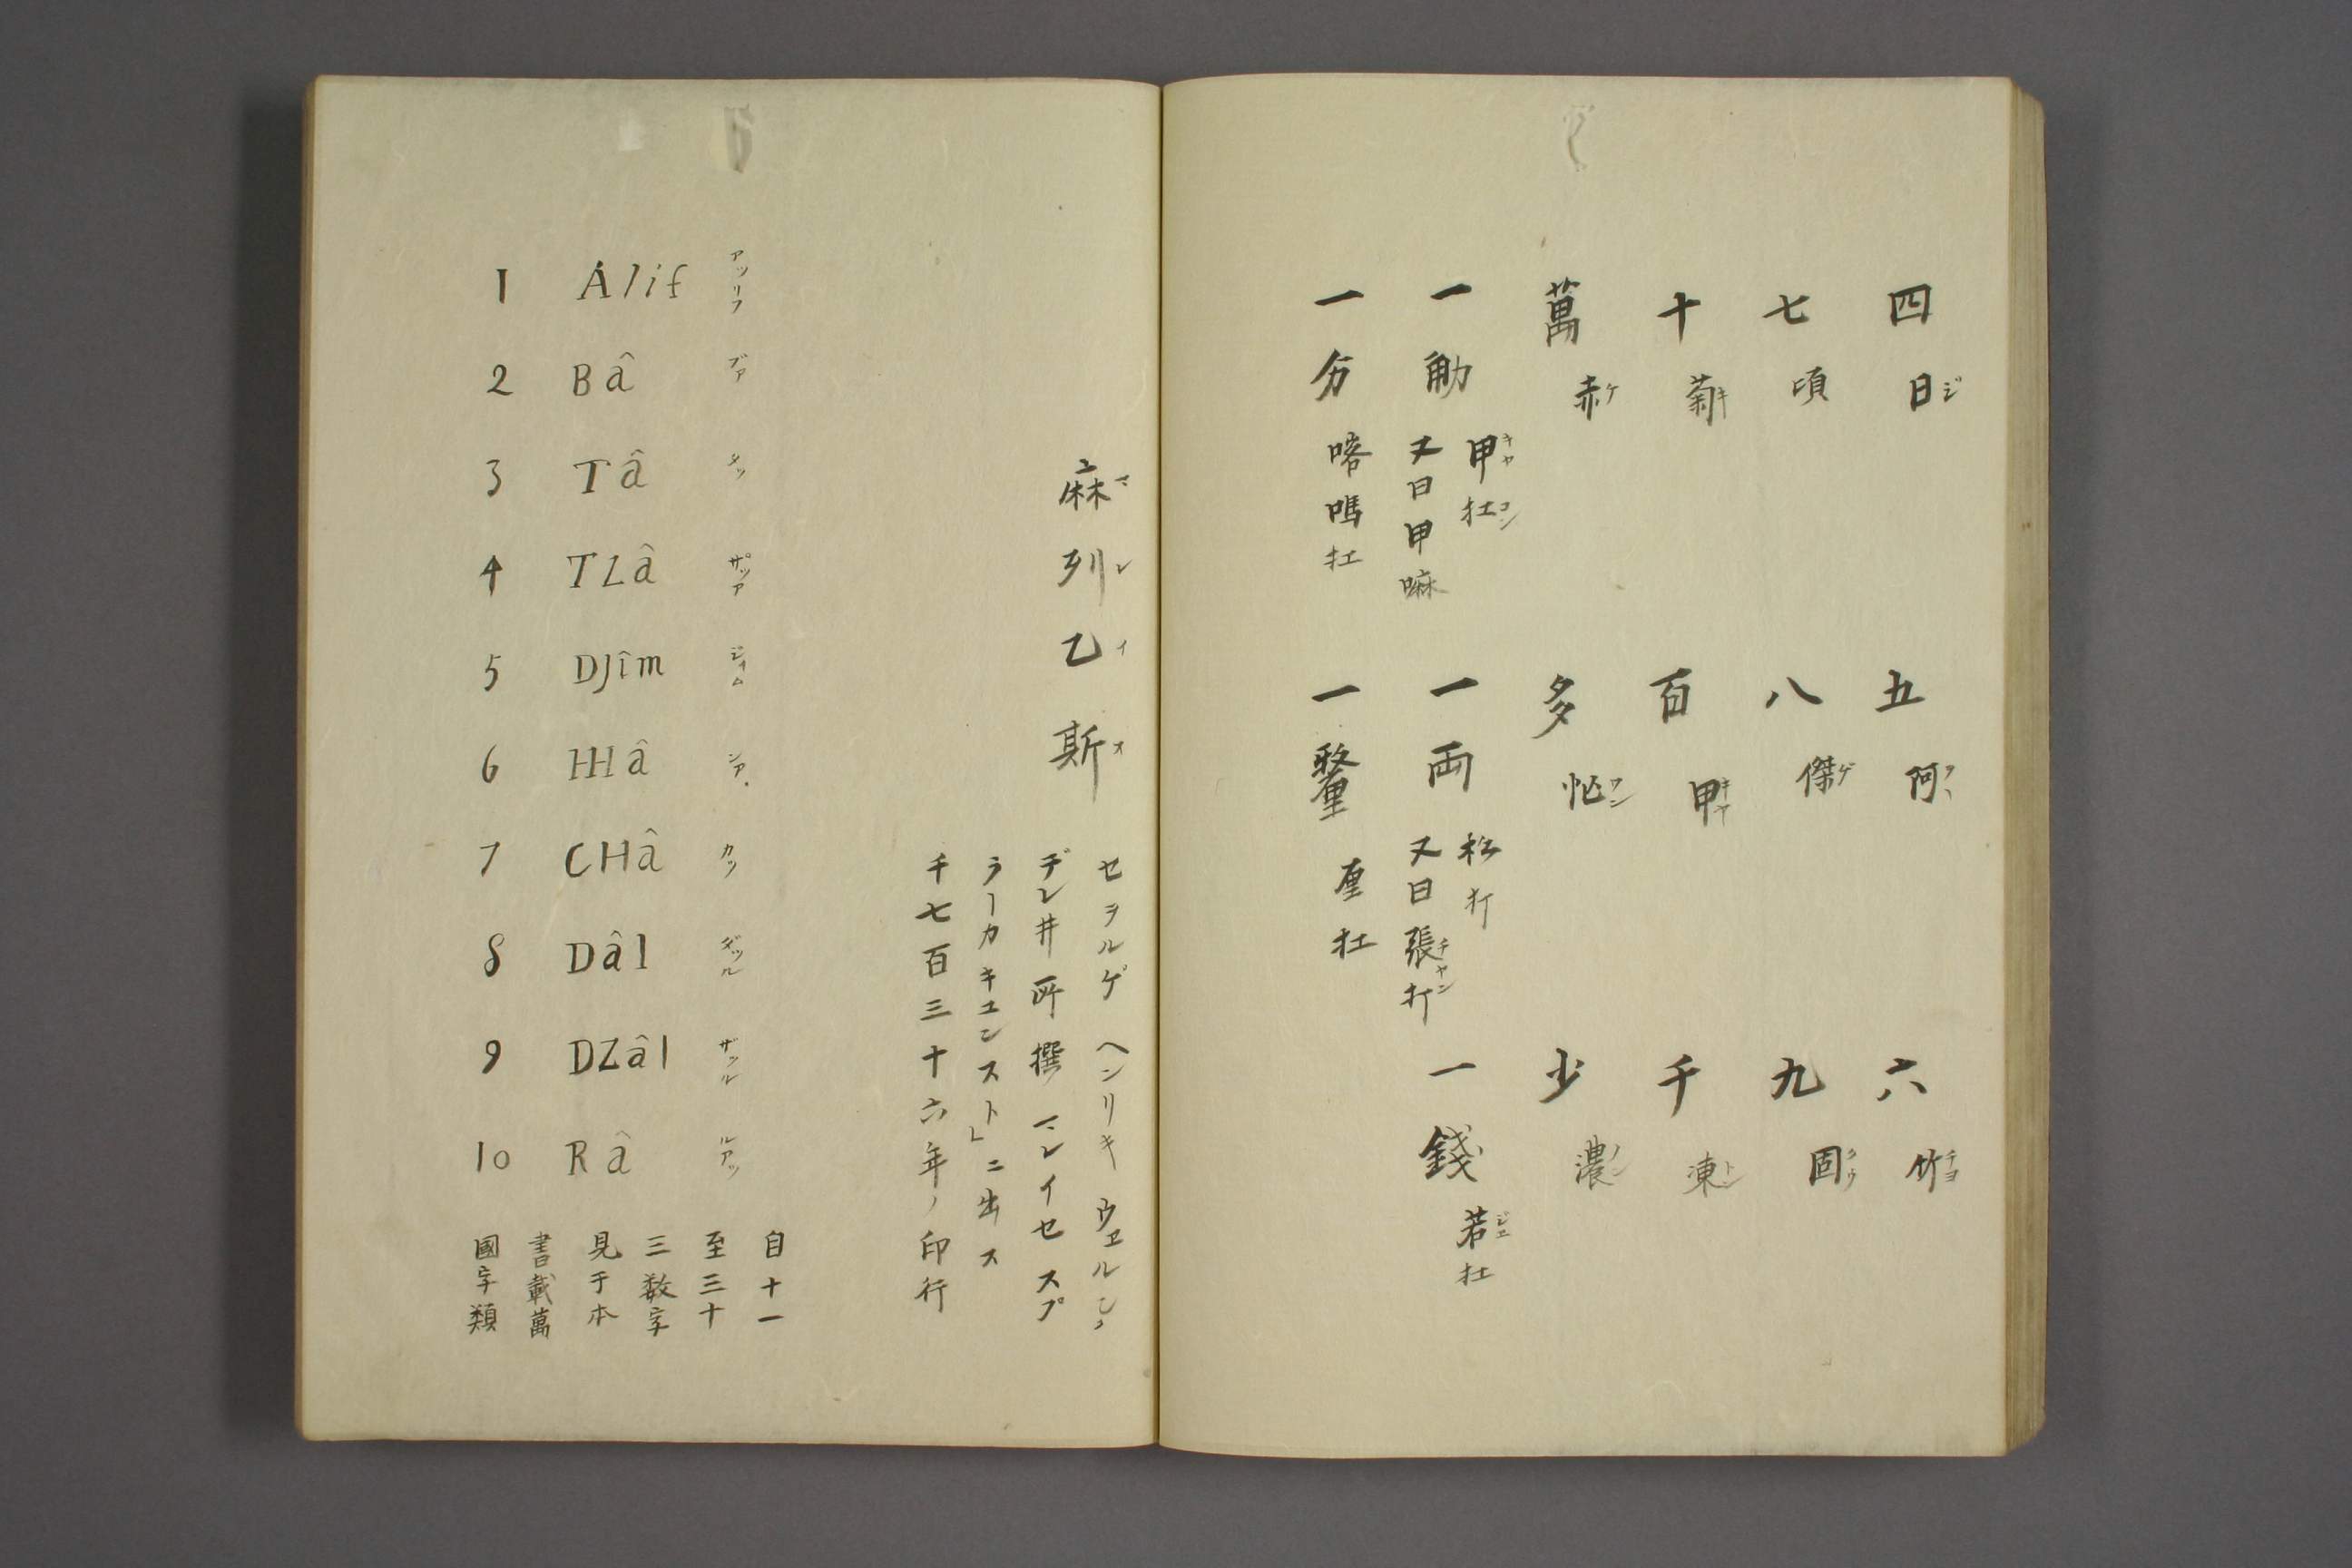 四 日ジ
五 阿
六 竹チヨ
七 頃
八 傑ゲ
九 固クウ
十 菊キ
百 甲キヤ
千 凍トン
萬 赤ケ
多 怭ワン
少 濃ノン
一觔 甲キヤ 扗コン
又曰甲嘛
一両 松打
又曰張チヤン打
一錢 若ジエ扗
一分 喀嗎扗
一釐 厘扗
麻マ列レ乙イ斯
セヲルゲ ヘンリキ ウエルン
デレ井所撰 マレイセ スプ
ラーカキユンスト」ニ出ス
千七百三十六年ノ印行
アツリフ
Alif
1
ブア
Bâ
2
タツ
Tâ
3
サツア
TZâ
4
ジイム
DJîm
5
HHâ
6
カツ
CHâ
7
ダツル
Dâl
8
ザツル
DZâl
9
ルアツ
Râ
10
自十一
至三十
三数字
見于本
書載萬
國字類